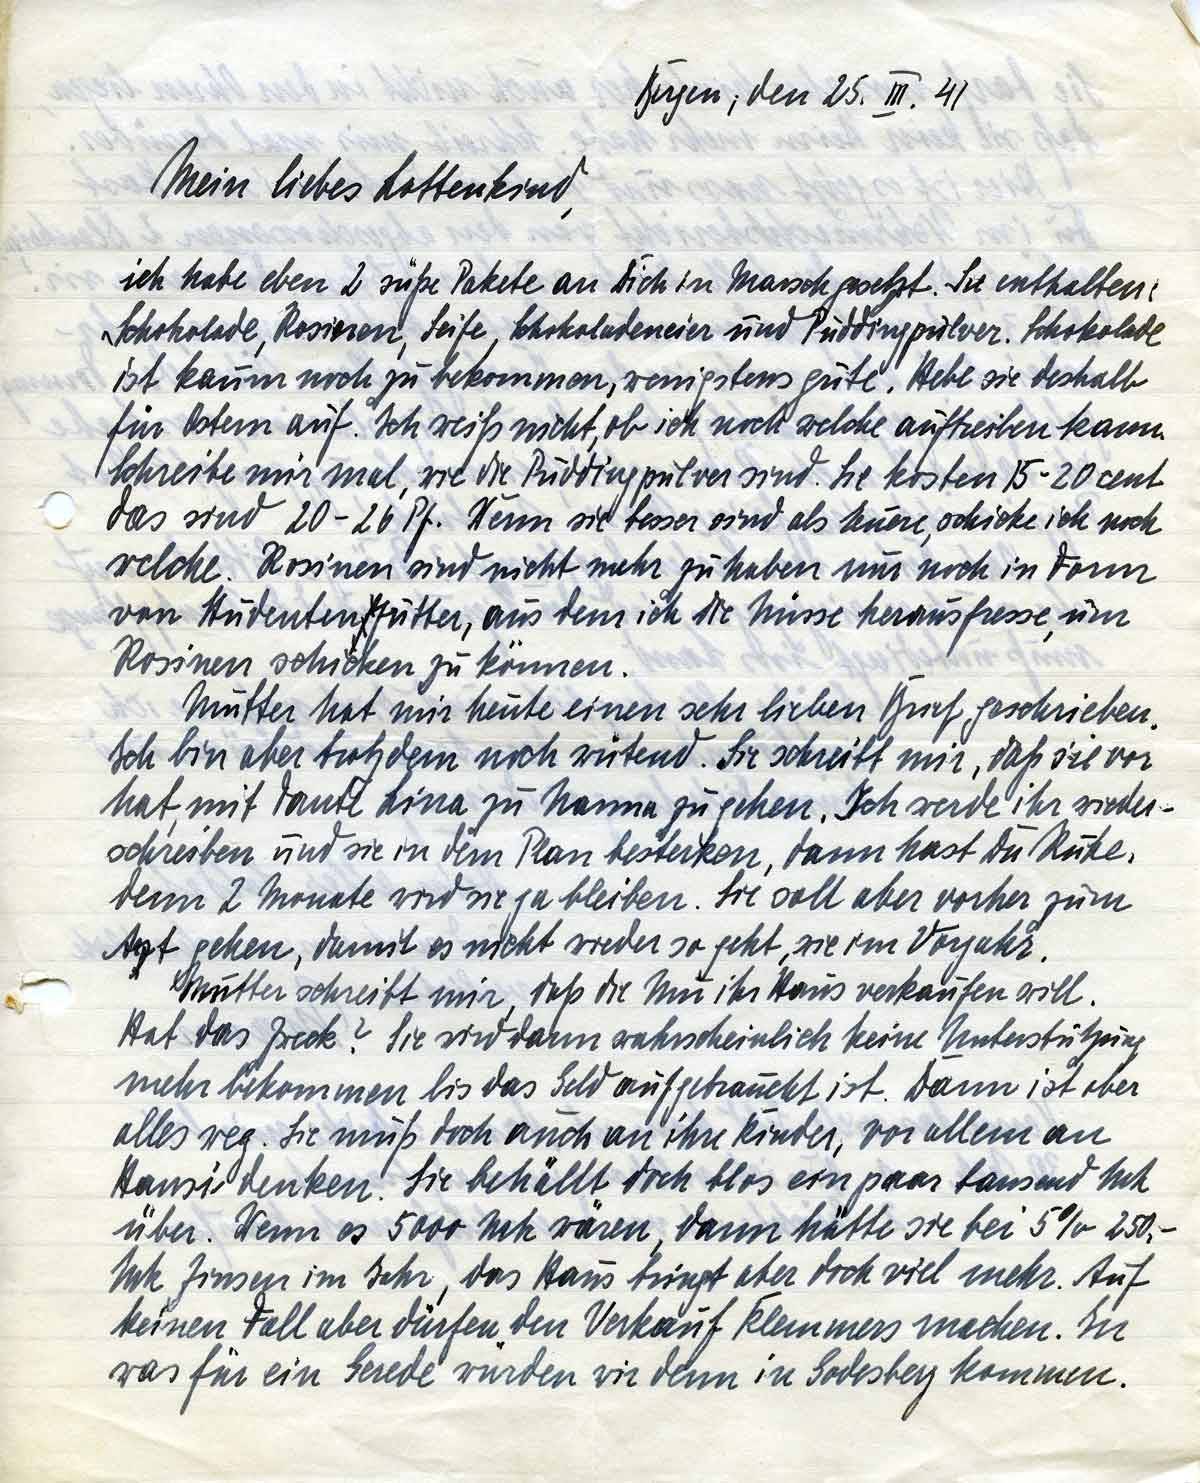 Bergen, den 25. III. 41
Mein liebes Lottenkind,
ich habe eben 2 süße Pakete an Dich in Marsch gesetzt. Sie enthalten:
Schokolade, Rosinen, Seife, Schokoladeneier und Puddingpulver. Schokolade
ist kaum noch zu bekommen, wenigstens gute. Hebe sie deshalb
für Ostern auf. Ich weiß nicht, ob ich noch welche auftreiben kann.
Schreibe mir mal, wie die Puddingpulver sind. Sie kosten 15-20 cent
das sind 20-26 Pf. Wenn sie besser sind als Euere, schicke ich noch
welche. Rosinen sind nicht mehr zu haben nur noch in Form
von Studentenfutter, aus dem ich die Nüsse herausfresse, um
Rosinen schicken zu können.
Mutter hat mir heute einen sehr lieben Brief geschrieben.
Ich bin aber trotzdem noch wütend. Sie schreibt mir, daß sie vor
hat, mit Tante Lina zu Nanna zu gehen. Ich werde ihr wieder-
schreiben und sie in dem Plan bestärken, dann hast Du Ruhe,
denn 2 Monate wird sie ja bleiben. Sie soll aber vorher zum
Arzt gehen, damit es nicht wieder so geht, wie im Vorjahr.
Mutter schreibt mir, daß die Mu ihr Haus verkaufen will.
Hat das Zweck? Sie wird dann wahrscheinlich keine Unterstützung
mehr bekommen bis das Geld aufgebraucht ist. Dann ist aber
alles weg. Sie muß doch auch an ihre Kinder, vor allem an
Hansi denken. Sie behällt doch blos ein paar tausend Mk
über. Wenn es 5000 Mk wären, dann hätte sie bei 5% 250,-
Mk Zinsen im Jahr, das Haus bringt aber doch viel mehr. Auf
keinen Fall aber dürfen den Verkauf Klemmers machen. In
was für ein Gerede würden wir denn in Godesberg kommen.